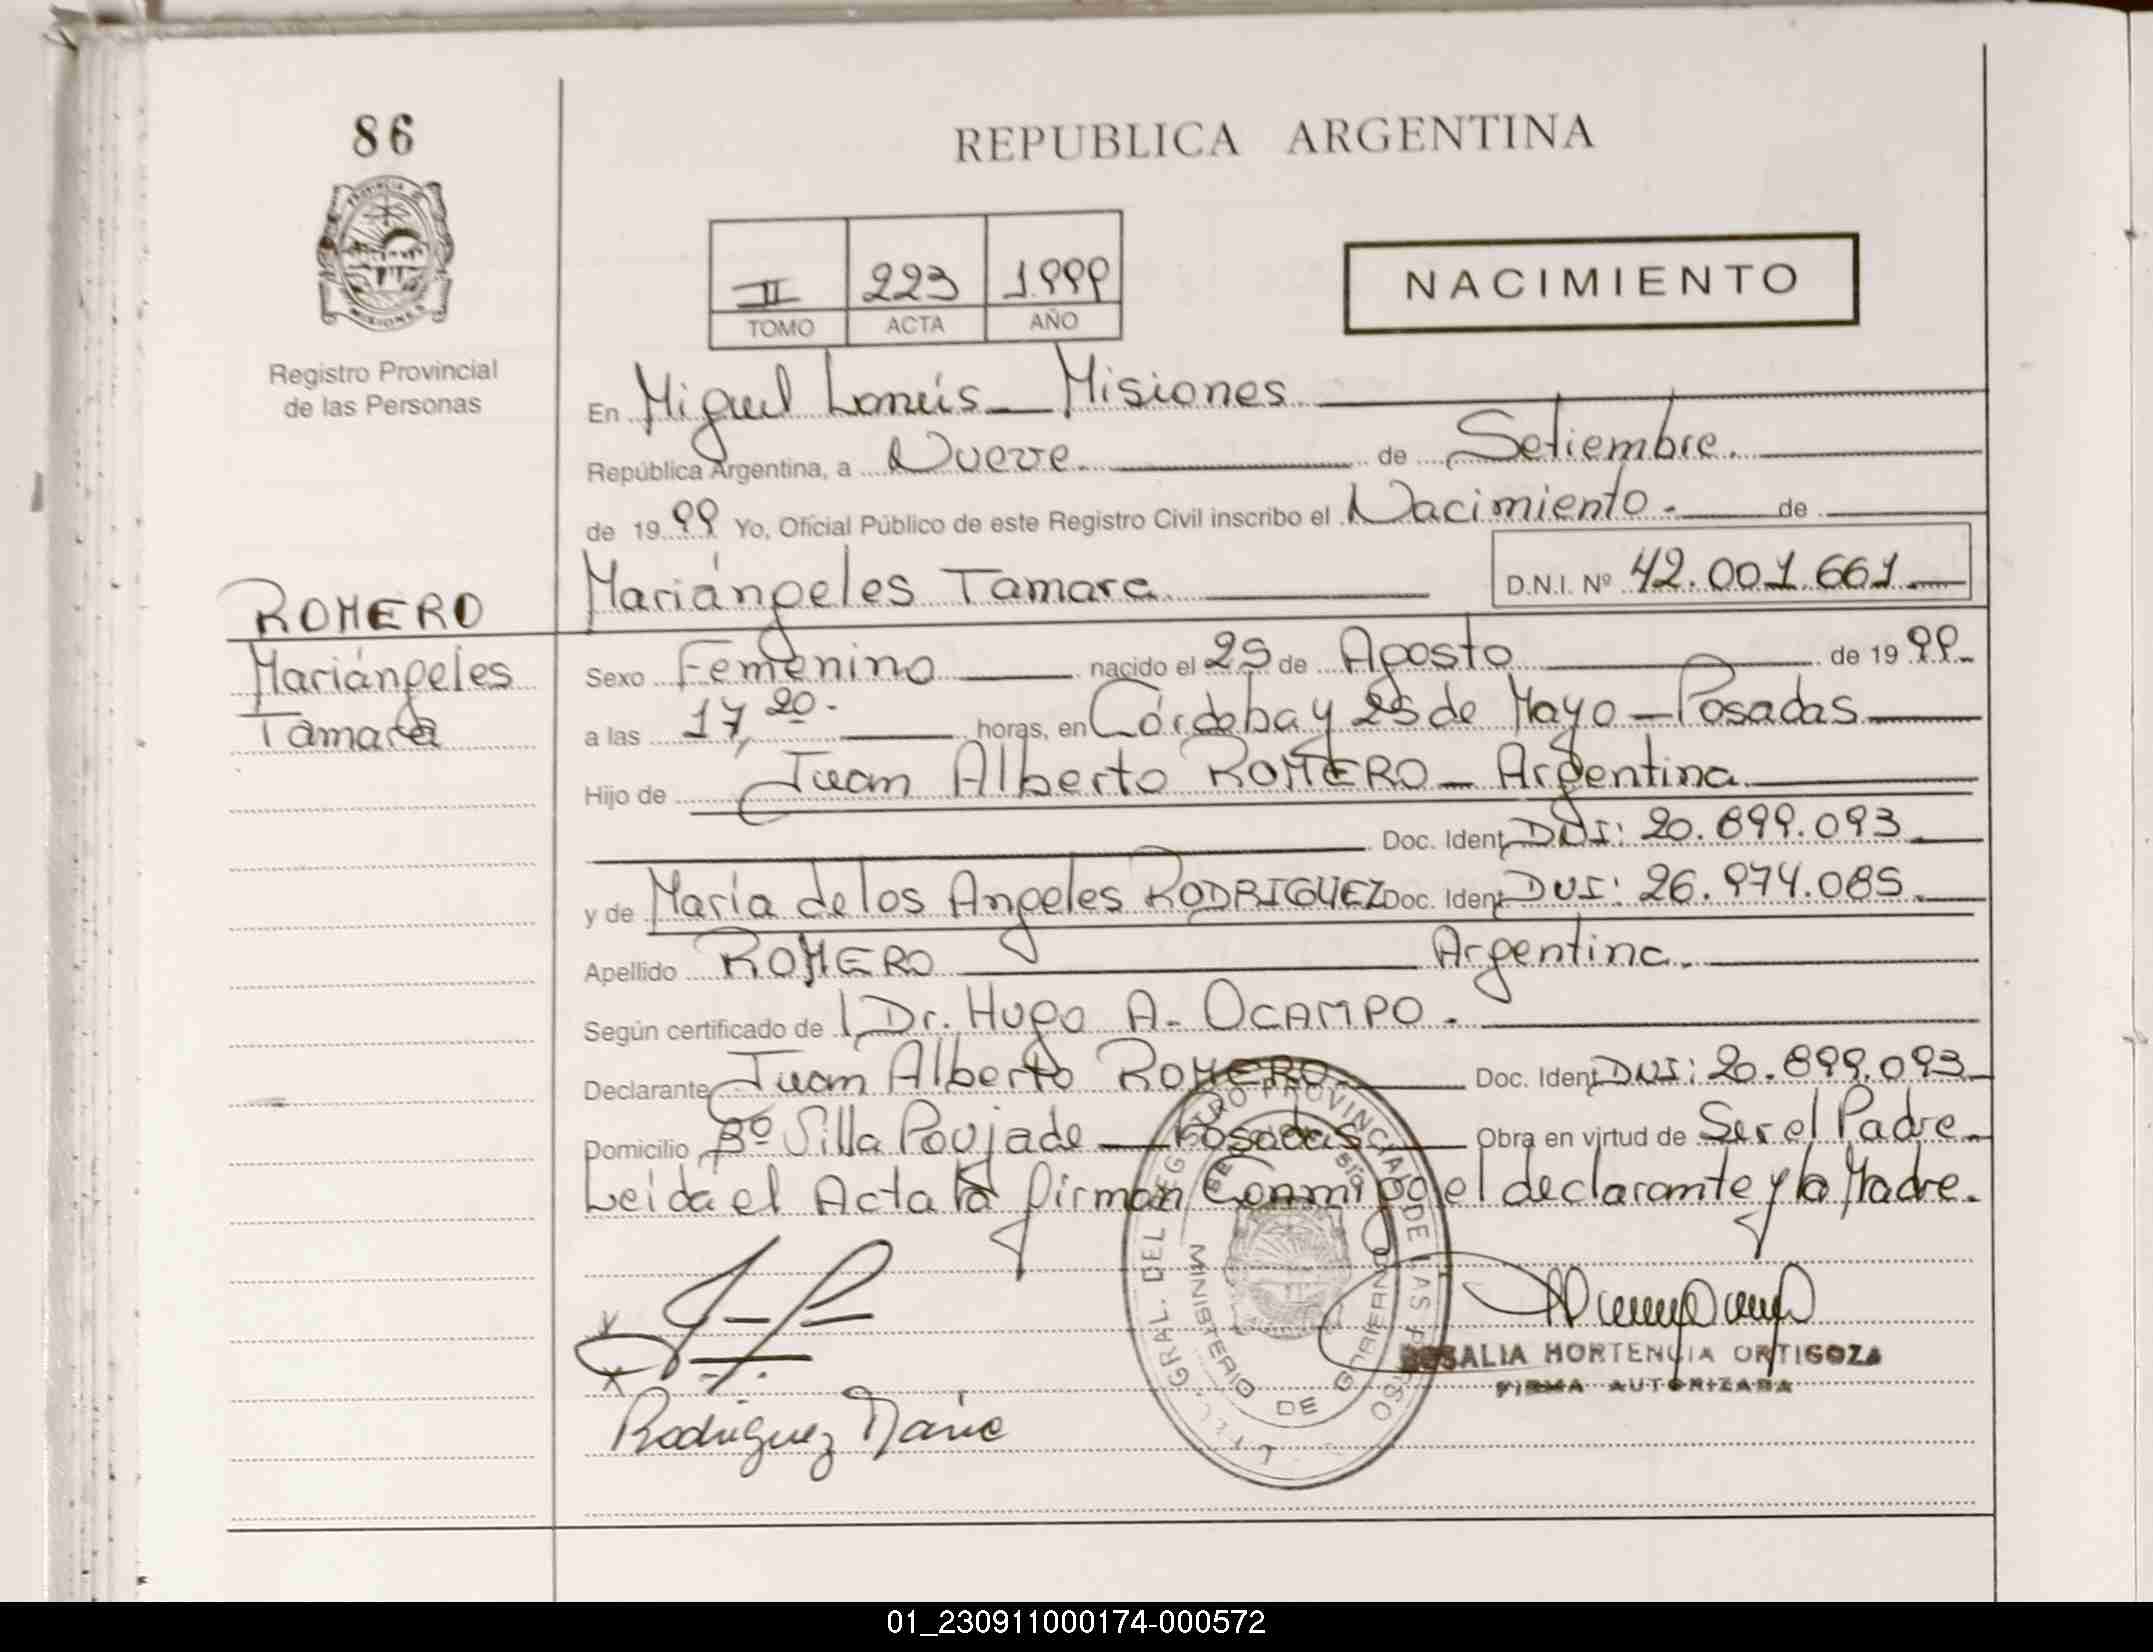 86
REPUBLICA ARGENTINA
PROVINCIA DE
MISIONES
Registro Provincial
de las Personas
II 223 1.999
TOMO ACTA AÑO
NACIMIENTO
En Miguel Lanús - Misiones
República Argentina, a Nueve. de Setiembre.
de 1999 Yo, Oficial Público de este Registro Civil inscribo el Nacimiento. de
ROMERO
Mariángeles Tamara D.N.I. Nº 42.001.661.
Mariángeles
Tamara
Sexo Femenino nacido el 25 de Agosto de 1999.
a las 17,20. horas, en Córdoba y 25 de Mayo - Posadas
Hijo de Juan Alberto ROMERO - Argentina
Doc. Ident. DNI: 20.899.093
y de María de los Angeles RODRIGUEZ Doc. Ident. DNI: 26.974.085.
Apellido ROMERO Argentina.
Según certificado de Dr. Hugo A. OCAMPO.
Declarante Juan Alberto ROMERO. Doc. Ident. DNI: 20.899.093
Domicilio Bº Villa Poujade - Posadas Obra en virtud de Ser el Padre.
Leída el Acta la firman Conmigo el declarante y la Madre.
GRAL. DEL REGISTRO PROVINCIAL DE LAS PERSO
MINISTERIO DE GOBIERNO
ROSALIA HORTENCIA ORTIGOZA
FIRMA AUTORIZADA
X
X
Rodriguez Maria
01_230911000174-000572